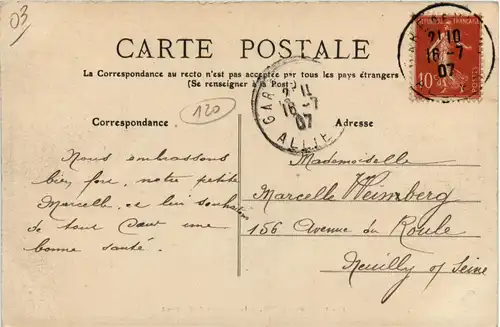 03
CARTE POSTALE
La Correspondance au recto n'est pas acceptée par tous les pays étrangers
(Se renseigner à la Poste)
RÉPUBLIQUE FRANÇAISE
10
21 10
16-7
07
GARE
2 11
16-7
07
ALLIE
120
Correspondance
Adresse
Nous embrassons
bien fort, notre petite
Marcelle, et lui souhaitons
de tout cœur une
bonne santé.
Mademoiselle
Marcelle Weimberg
156 Avenue du Roule
Neuilly s/ Seine